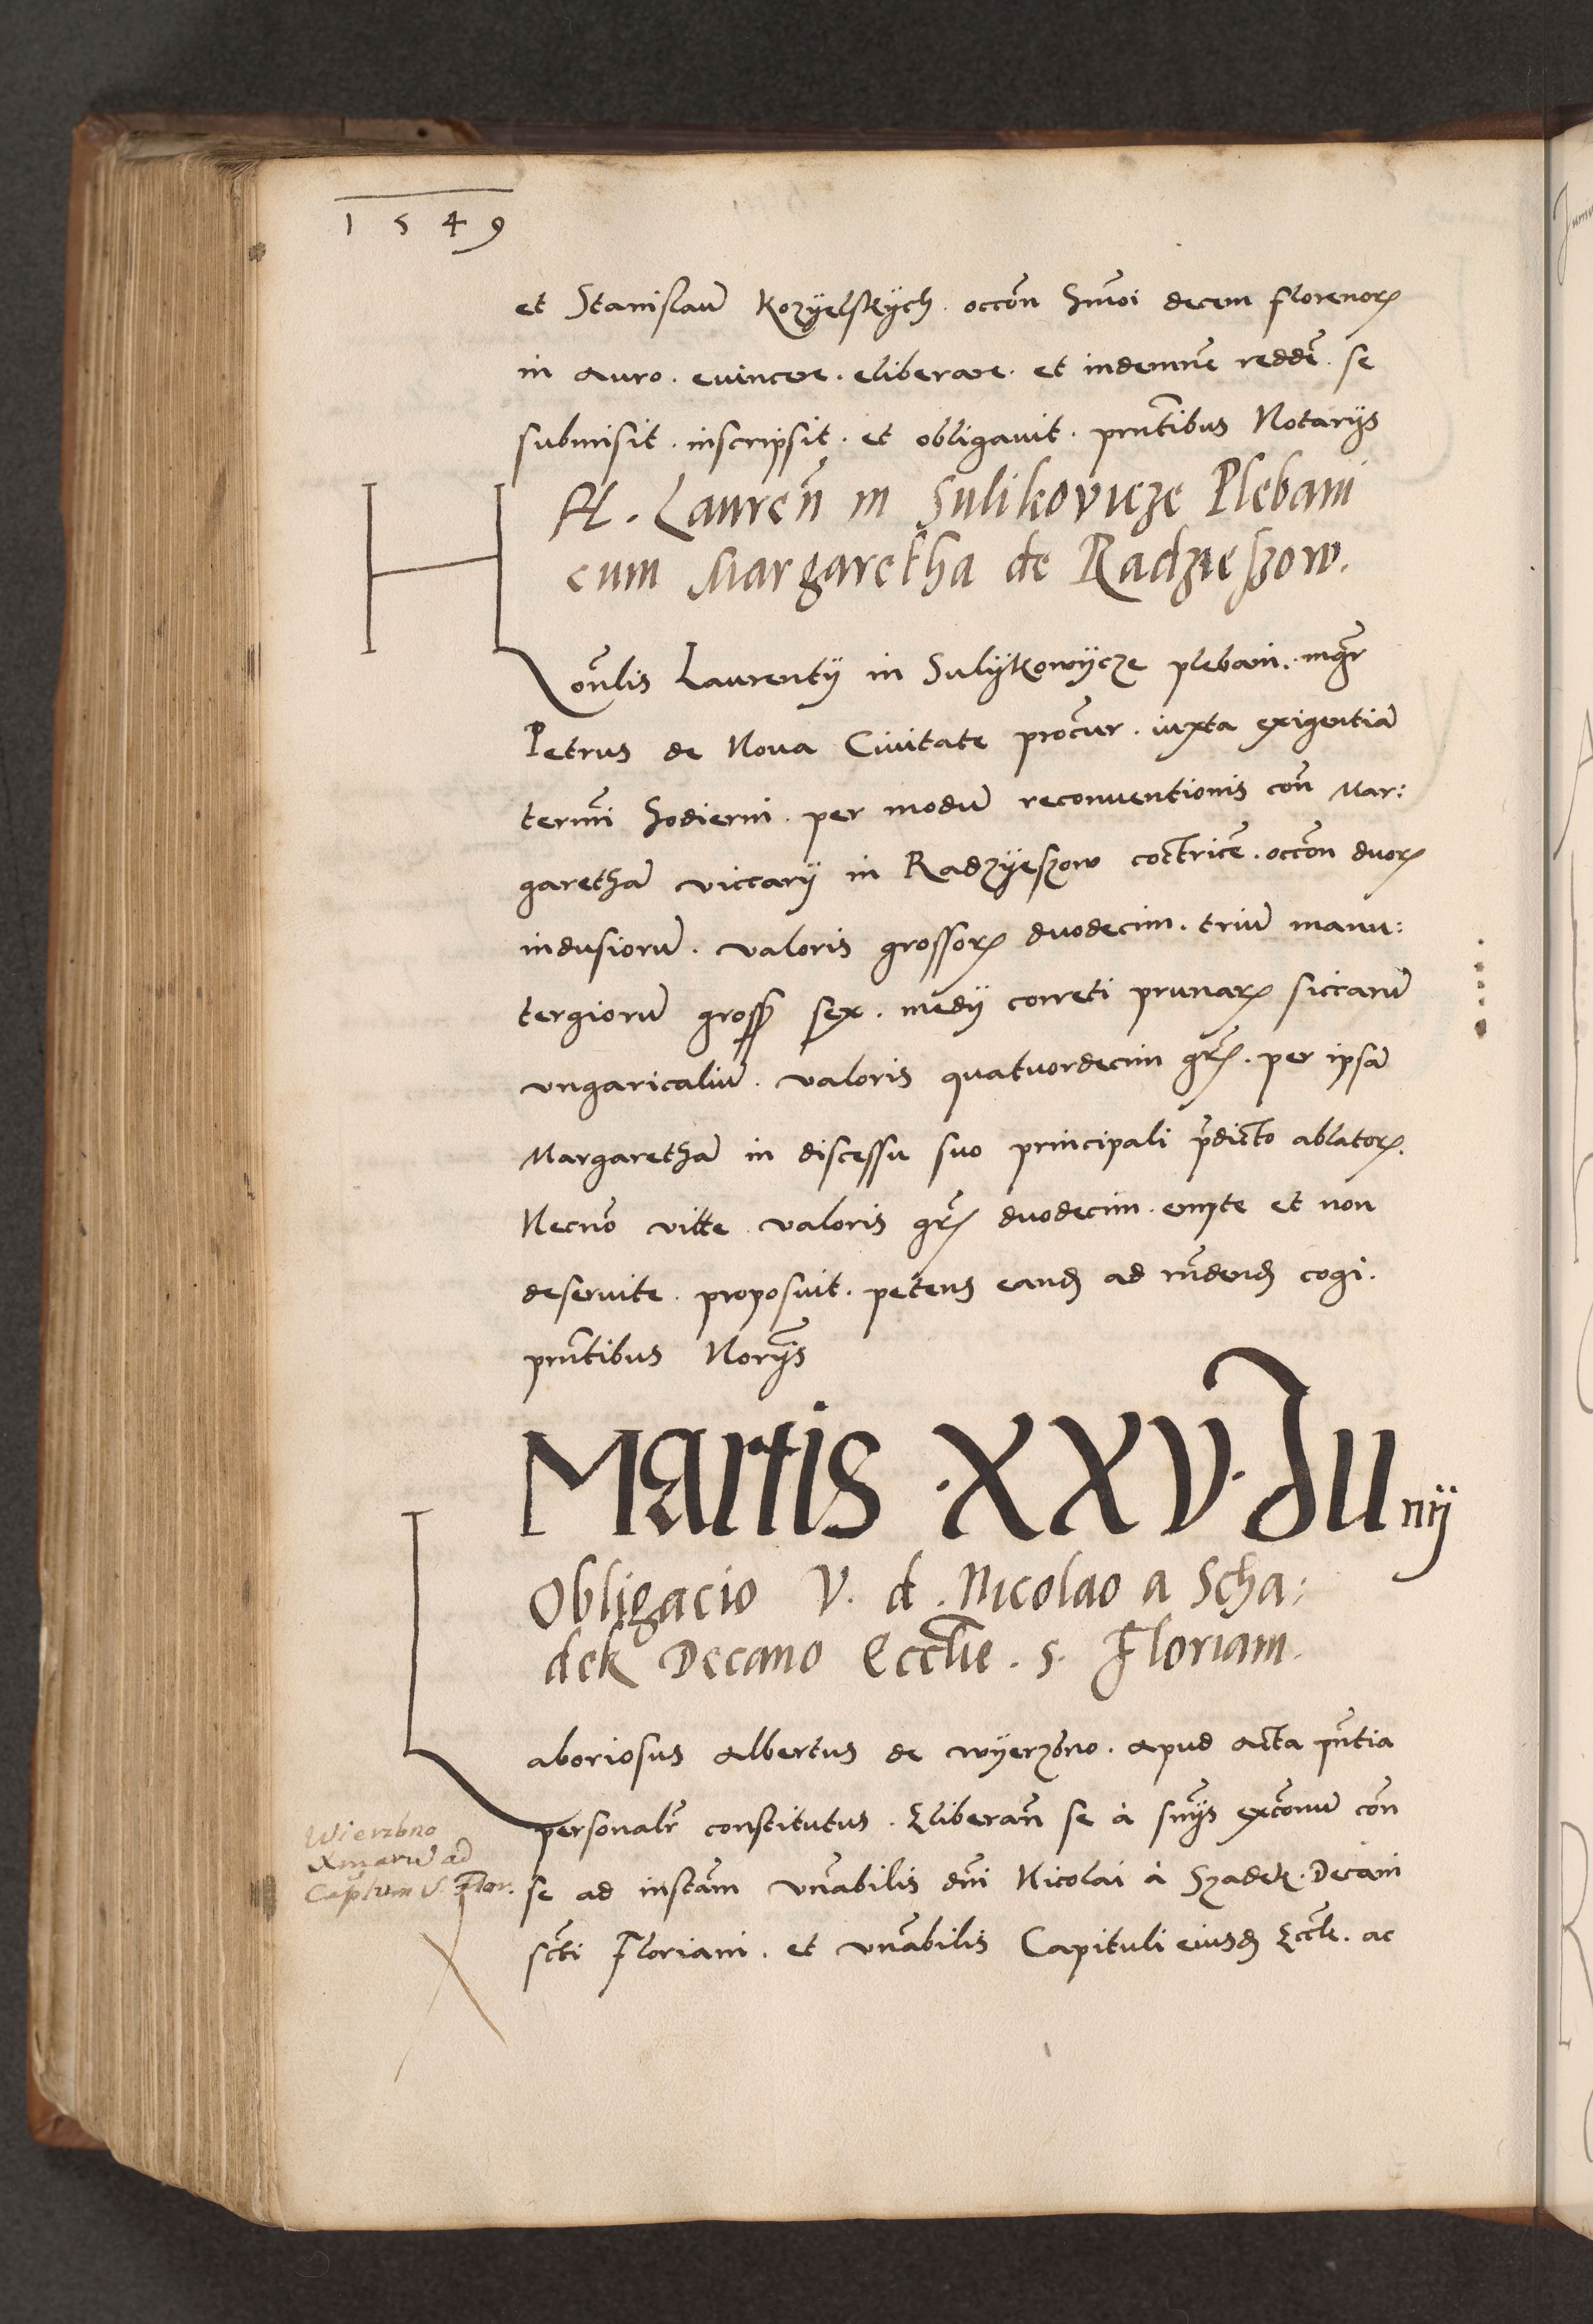 1549
et Stanislaũ Kozyelskych. occõn hmõi decem florenoꝝ
in auro. euincere. eliberare. et indemnẽ reddẽ. se
submisit. inscripsit. et obligauit. pñtibus Notarijs
H. Laureñ in Sulikovicze Plebani
cum Margaretha de Radzieszow.
Honñlis Laurentij in Sulykowycze plebani. mgr̃
Petrus de Noua Ciuitate procũr. iuxta exigentiã
termĩ hodierni. per modũ reconuentionis coñ Mar:
garethã viccarij in Radzyeszow coctricẽ. occõn duoꝝ
indusiorũ. valoris grossoꝝ duodecim. triũ manu:
tergiorũ gross sex. medij correti prunaꝝ siccarũ
vngaricaliũ. valoris quatuordecim gr̃. per ipsã
Margarethã in discessu suo principali p̃dicto ablatoꝝ.
Necnõ vitte valoris gr̃ duodecim. empte et non
deseruite. proposuit. petens eand ad rñdend cogi.
pñtibus Norijs
Martis .XXV. Junij
Obligacio V. d. Nicolao a Scha:
dek Decano Eccłie. S. Floriani.
Laboriosus Albertus de Wyerzbno. apud acta pñtia
personalr̃ constitutus. Eliberañ se à sñijs excõnũ coñ
se ad instãm vñabilis dñi Nicolai à Szadek. Decani
scti Floriani. et vñabilis Capituli eiusd Eccłe. ac
Wierzbno
ad
Capłum S. Flor.